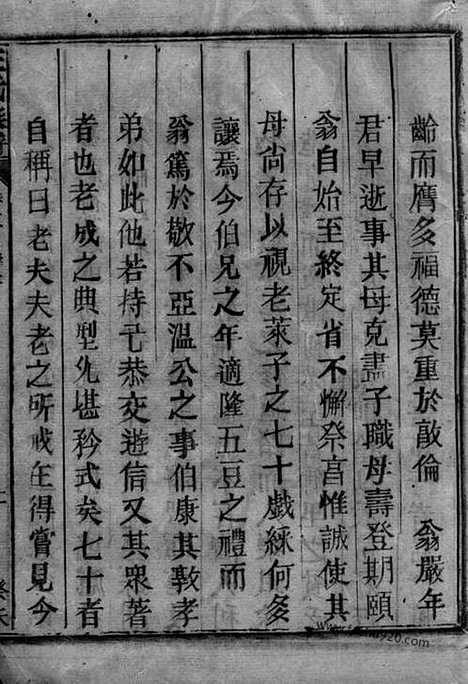 齡而膺多福德莫重於敵倫　翁嚴年
君早逝事其母克盡子職母壽登期頤
翁自始至終定省不懈祭葍惟誠使其
母尚存以視老萊子之七十戲綵何多
讓焉今伯兄之年適隆五豆之禮而
翁篤於敬不亞溫公之事伯康其敦孝
弟如此他若持己恭交遊信又其眾著
者也老成之典型允堪矜式矣七十者
自稱曰老夫夫老之所戒在得嘗見今